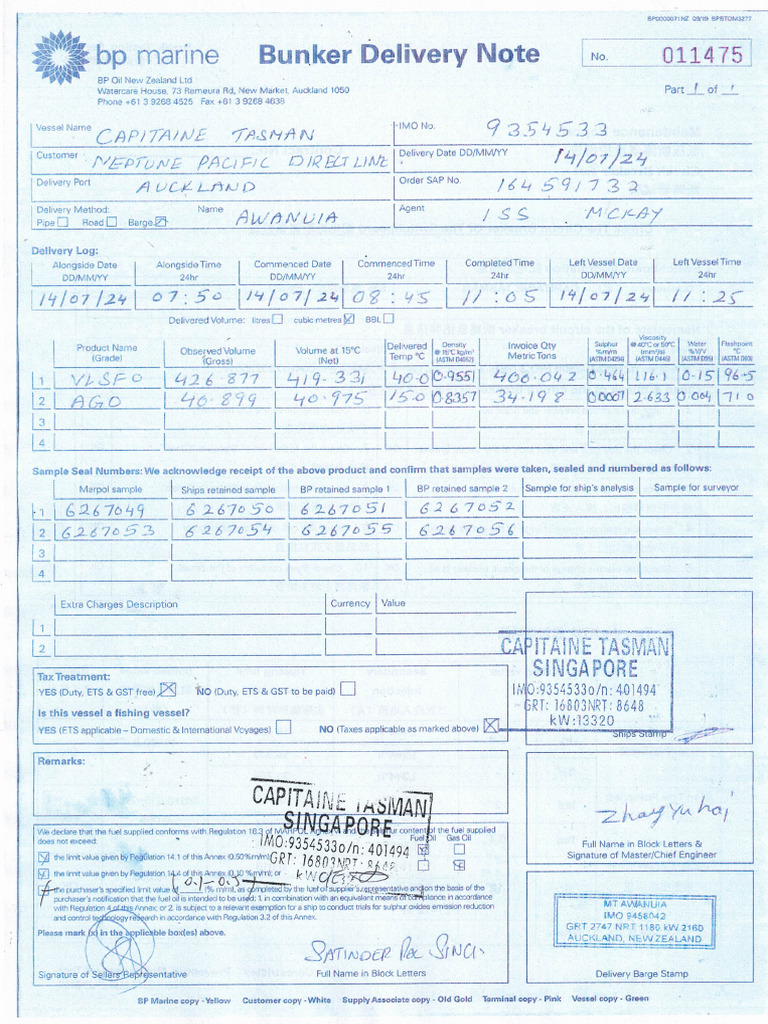 BP0000071NZ 09/19 BPSTOM3277
bp marine
Bunker Delivery Note
No. 011475
BP Oil New Zealand Ltd
Watercare House, 73 Remuera Rd, New Market, Auckland 1050
Phone +61 3 9268 4525 Fax +61 3 9268 4638
Part 1 of 1
Vessel Name CAPITAINE TASMAN
IMO No. 9354533
Customer NEPTUNE PACIFIC DIRECT LINE
Delivery Date DD/MM/YY 14/07/24
Delivery Port AUCKLAND
Order SAP No. 164591732
Delivery Method: Pipe Road Barge
Name AWANUIA
Agent ISS MCKAY
Delivery Log:
Alongside Date Alongside Time Commenced Date Commenced Time Completed Time Left Vessel Date Left Vessel Time
DD/MM/YY 24hr DD/MM/YY 24hr 24hr DD/MM/YY 24hr
14/07/24 07:50 14/07/24 08:45 11:05 14/07/24 11:25
Delivered Volume: litres cubic metres BBL
Product Name (Grade) Observed Volume (Gross) Volume at 15°C (Net) Delivered Temp °C Density @ 15°C kg/m³ (ASTM D4052) Invoice Qty Metric Tons Sulphur %m/m (ASTM D4294) Viscosity @ 40°C or 50°C (mm²/s) (ASTM D445) Water %V/V (ASTM D95) Flashpoint °C (ASTM D93)
1 VLSFO 426.877 419.331 40.0 0.9551 400.042 0.464 116.1 0.15 96.5
2 AGO 40.899 40.975 15.0 0.8357 34.198 0.0007 2.633 0.004 71.0
3
4
Sample Seal Numbers: We acknowledge receipt of the above product and confirm that samples were taken, sealed and numbered as follows:
Marpol sample Ships retained sample BP retained sample 1 BP retained sample 2 Sample for ship's analysis Sample for surveyor
1 6267049 6267050 6267051 6267052
2 6267053 6267054 6267055 6267056
3
4
Extra Charges Description Currency Value
1
2
CAPITAINE TASMAN
SINGAPORE
IMO:9354533o/n: 401494
GRT: 16803NRT: 8648
kW:13320
Ships Stamp
Tax Treatment:
YES (Duty, ETS & GST free) NO (Duty, ETS & GST to be paid)
Is this vessel a fishing vessel?
YES (ETS applicable – Domestic & International Voyages) NO (Taxes applicable as marked above)
Remarks:
CAPITAINE TASMAN
SINGAPORE
IMO:9354533o/n: 401494
GRT: 16803NRT: 8648
kW
Zhang Yu hai
Full Name in Block Letters &
Signature of Master/Chief Engineer
We declare that the fuel supplied conforms with Regulation 18.3 of MARPOL and the sulphur content of the fuel supplied
does not exceed: Fuel Oil Gas Oil
the limit value given by Regulation 14.1 of this Annex (0.50%m/m)
the limit value given by Regulation 14.4 of this Annex (0.10 %m/m); or
the purchaser's specified limit value (%m/m), as completed by the fuel oil supplier's representative and on the basis of the
purchaser's notification that the fuel oil is intended to be used: 1. in combination with an equivalent means of compliance in accordance
with Regulation 4 of this Annex; or 2. is subject to a relevant exemption for a ship to conduct trials for sulphur oxides emission reduction
and control technology research in accordance with Regulation 3.2 of this Annex.
Please mark (x) in the applicable box(es) above.
SATINDER PAL SINGH
Signature of Sellers Representative
Full Name in Block Letters
MT AWANUIA
IMO 9458042
GRT 2747 NRT 1180 kW 2160
AUCKLAND, NEW ZEALAND
Delivery Barge Stamp
BP Marine copy - Yellow Customer copy - White Supply Associate copy - Old Gold Terminal copy - Pink Vessel copy - Green